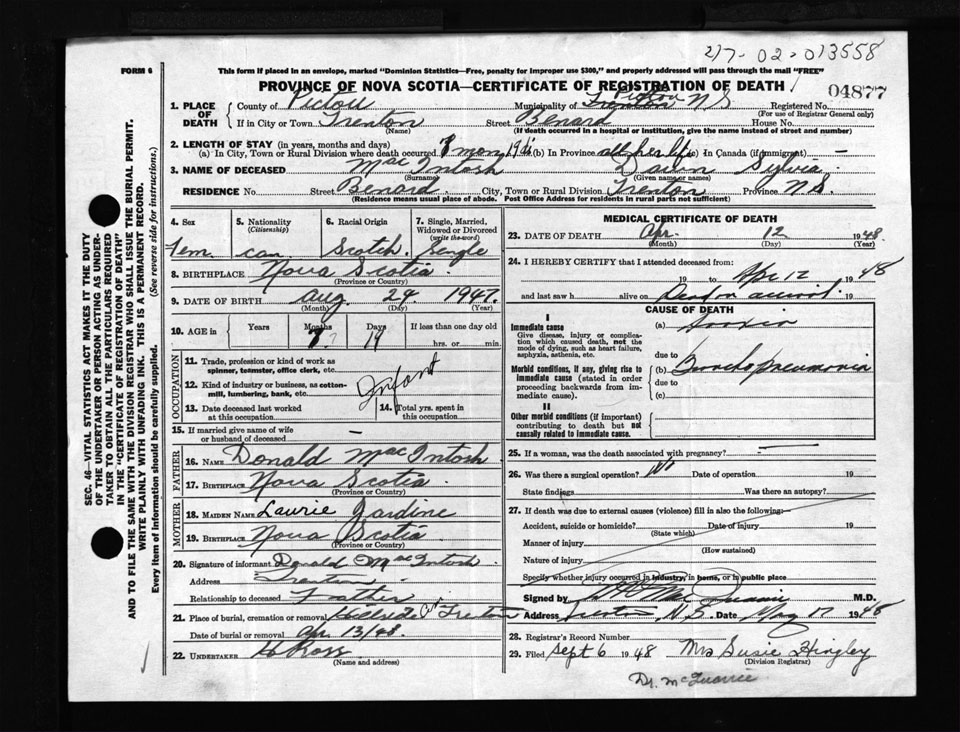 2/7-02-013558
FORM 6
This form if placed in an envelope, marked "Dominion Statistics—Free, penalty for improper use $300," and properly addressed will pass through the mail "FREE"
PROVINCE OF NOVA SCOTIA—CERTIFICATE OF REGISTRATION OF DEATH
04877
1. PLACE OF DEATH
County of Pictou Municipality of Trenton Pictou N S Registered No.
(For use of Registrar General only)
If in City or Town Trenton Street Benard House No.
(Name) (If death occurred in a hospital or institution, give the name instead of street and number)
2. LENGTH OF STAY (in years, months and days)
(a) In City, Town or Rural Division where death occurred 7 mon 19 ds (b) In Province all her life (c) In Canada (if immigrant) —
3. NAME OF DECEASED Mac Intosh Dawn Sylvia
(Surname) (Given name or names)
RESIDENCE No. Street Benard City, Town or Rural Division Trenton Province N.S.
(Residence means usual place of abode. Post Office Address for residents in rural parts not sufficient)
4. Sex Fem.
5. Nationality (Citizenship) Can
6. Racial Origin Scotch
7. Single, Married, Widowed or Divorced (write the word) Single
8. BIRTHPLACE Nova Scotia
(Province or Country)
9. DATE OF BIRTH Aug 24 1947
(Month) (Day) (Year)
10. AGE in Years Months 7 Days 19 If less than one day old
hrs. or min.
OCCUPATION
11. Trade, profession or kind of work as spinner, teamster, office clerk, etc.
12. Kind of industry or business, as cotton-mill, lumbering, bank, etc. Infant
13. Date deceased last worked at this occupation
14. Total yrs. spent in this occupation
15. If married give name of wife or husband of deceased —
FATHER
16. NAME Donald Mac Intosh
17. BIRTHPLACE Nova Scotia
(Province or Country)
MOTHER
18. MAIDEN NAME Laurie Jardine
19. BIRTHPLACE Nova Scotia
(Province or Country)
20. Signature of informant Donald MacIntosh
Address Trenton
Relationship to deceased Father
21. Place of burial, cremation or removal Hillside Trenton
Date of burial or removal Apr. 13/48.
22. UNDERTAKER H Ross
(Name and address)
MEDICAL CERTIFICATE OF DEATH
23. DATE OF DEATH Apr. 12 1948
(Month) (Day) (Year)
24. I HEREBY CERTIFY that I attended deceased from:
19 to Apr 12 1948
and last saw h alive on Dead on arrival 19
CAUSE OF DEATH
I
Immediate cause
Give disease, injury or complication which caused death, not the mode of dying, such as heart failure, asphyxia, asthenia, etc.
(a)
due to
Morbid conditions, if any, giving rise to immediate cause (stated in order proceeding backwards from immediate cause).
(b) Bronchopneumonia
due to
(c)
II
Other morbid conditions (if important) contributing to death but not causally related to immediate cause.
25. If a woman, was the death associated with pregnancy? —
26. Was there a surgical operation? No Date of operation 19
State findings Was there an autopsy?
27. If death was due to external causes (violence) fill in also the following:—
Accident, suicide or homicide? Date of injury 19
(State which)
Manner of injury
(How sustained)
Nature of injury
Specify whether injury occurred in industry, in home, or in public place
Signed by M.D.
Address Trenton, N.S. Date May 17 1948
28. Registrar's Record Number
29. Filed Sept 6 1948 Mrs Susie Hingley
(Division Registrar)
Dr. McQuarrie
SEC. 46—VITAL STATISTICS ACT MAKES IT THE DUTY OF THE UNDERTAKER OR PERSON ACTING AS UNDERTAKER TO OBTAIN ALL THE PARTICULARS REQUIRED IN THE "CERTIFICATE OF REGISTRATION OF DEATH" AND TO FILE THE SAME WITH THE DIVISION REGISTRAR WHO SHALL ISSUE THE BURIAL PERMIT.
WRITE PLAINLY WITH UNFADING INK. THIS IS A PERMANENT RECORD.
Every item of information should be carefully supplied. (See reverse side for instructions.)